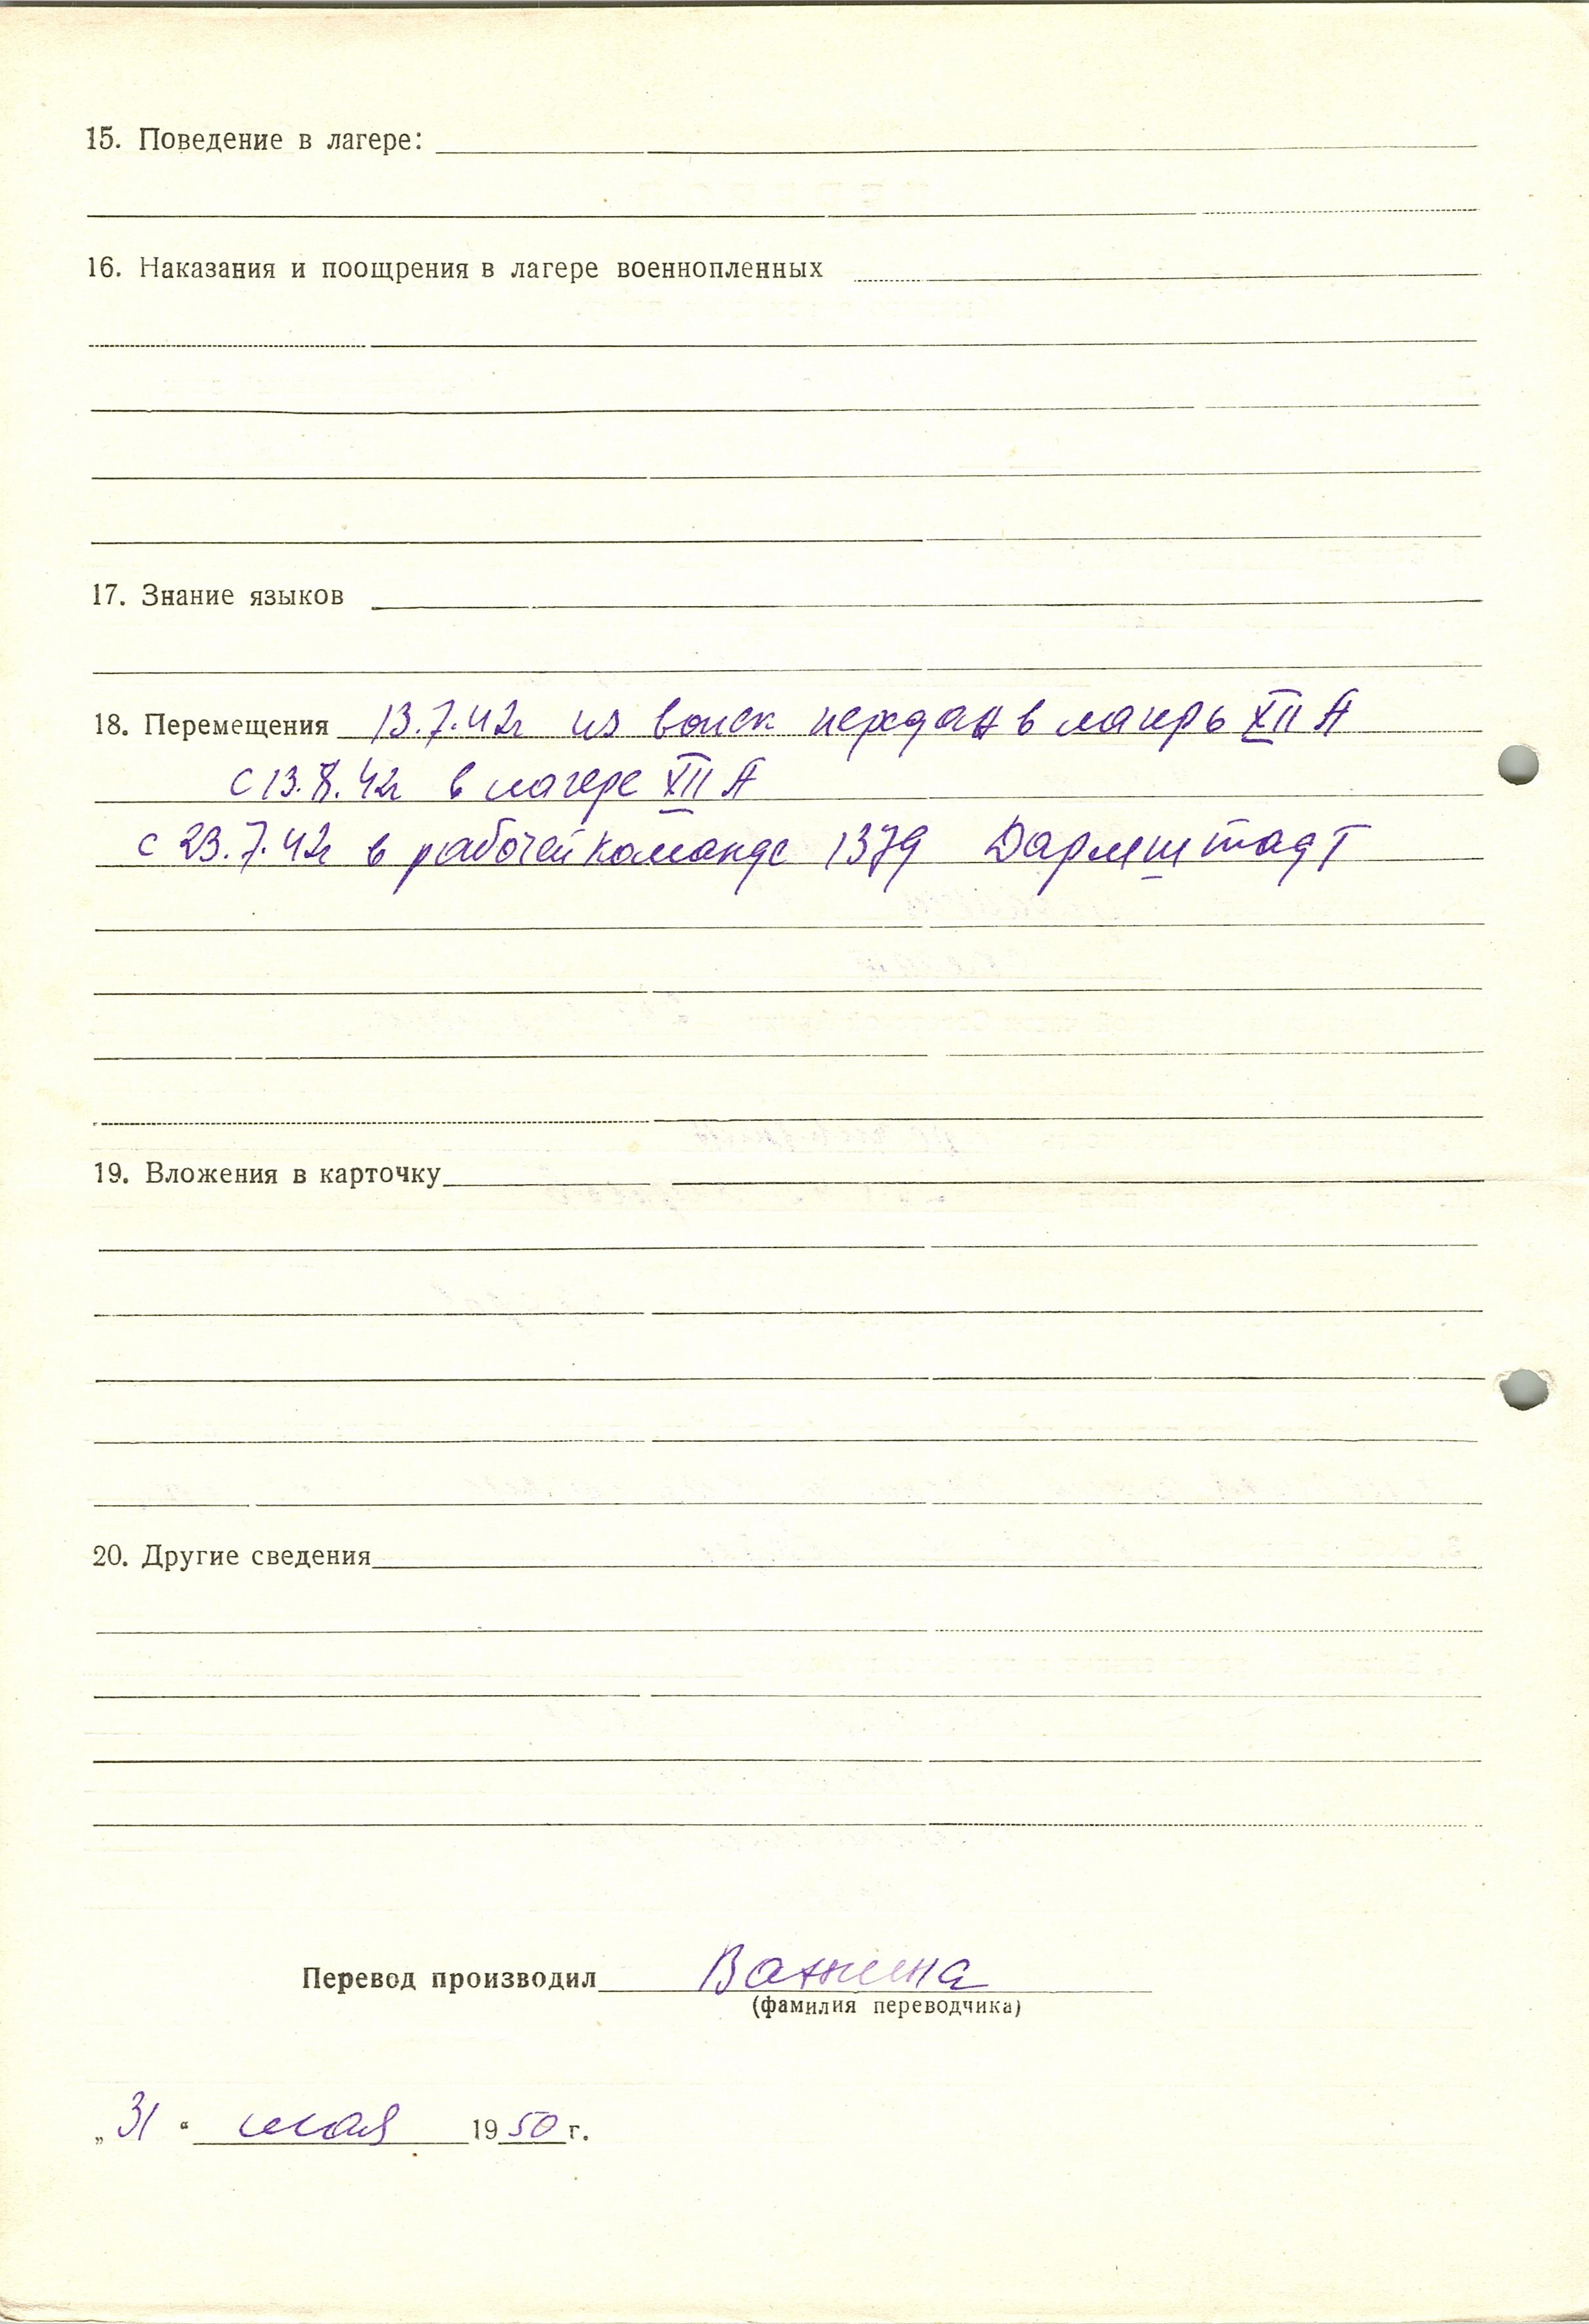 15. Поведение в лагере:
16. Наказания и поощрения в лагере военнопленных
17. Знание языков
18. Перемещения 13.7.42г из войск передан в лагерь XII A
с 13.8.42г в лагере XII A
с 23.7.42г в рабочей команде 1379 Дармштадт
19. Вложения в карточку
20. Другие сведения
Перевод производил Ванина
(фамилия переводчика)
„31“ мая 1950 г.